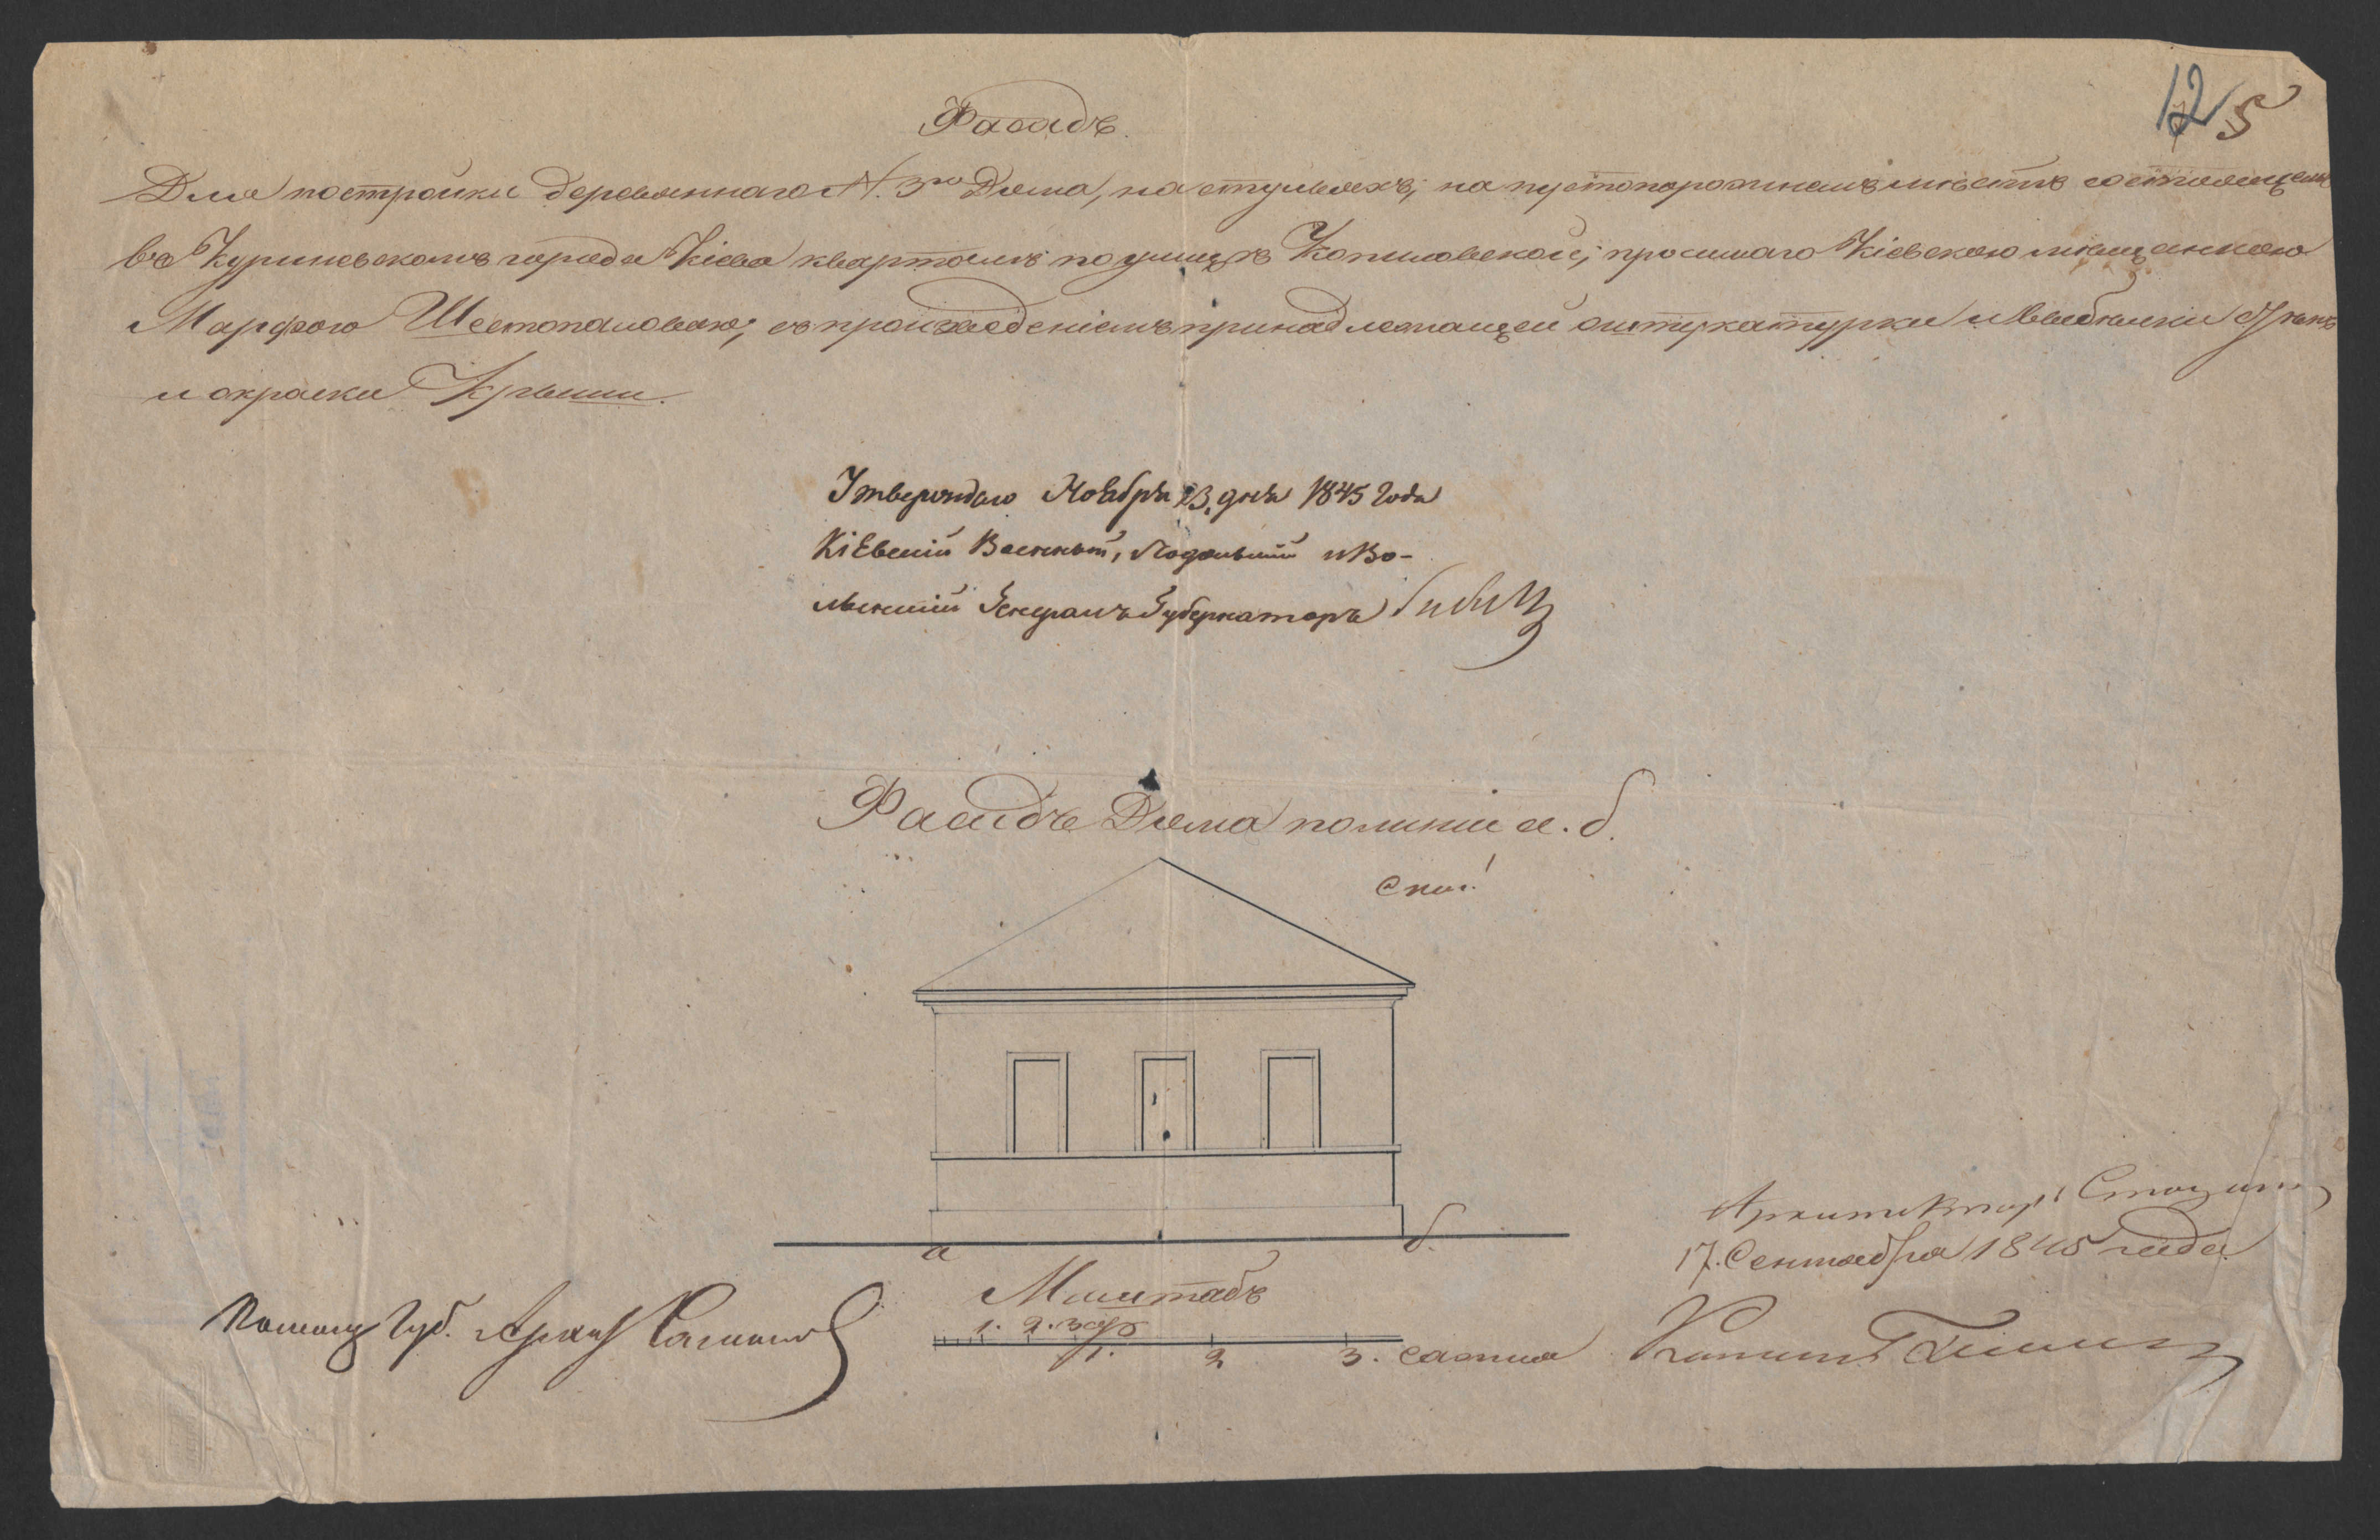 12 5
Фасадъ.
Для постройки деревяннаго N. 3го Дома, на стульяхъ, на пустопорожнемъ мѣстѣ состоящемъ
въ Куриневскомъ города Кіева кварталѣ по улицѣ Копиловской, просимаго Кіевскою мѣщанкою
Марфою Шестопаловою, съ произведеніемъ принадлежащей ощтукатурки и выбѣлки стѣнъ
и окраски Крыши.
Утверждаю Ноября 23 дня 1845 Года
Кіевскій Военный, Подольскій и Во-
лынскій Генералъ Губернаторъ Бибиковъ
Фасадъ Дома по линіи а. б.
а б.
Архитекторъ
17. Сентября 1845 года
Масштабъ
1. 2. 3 ар
1. 2 3. сажня
Помощ Губ. Архит